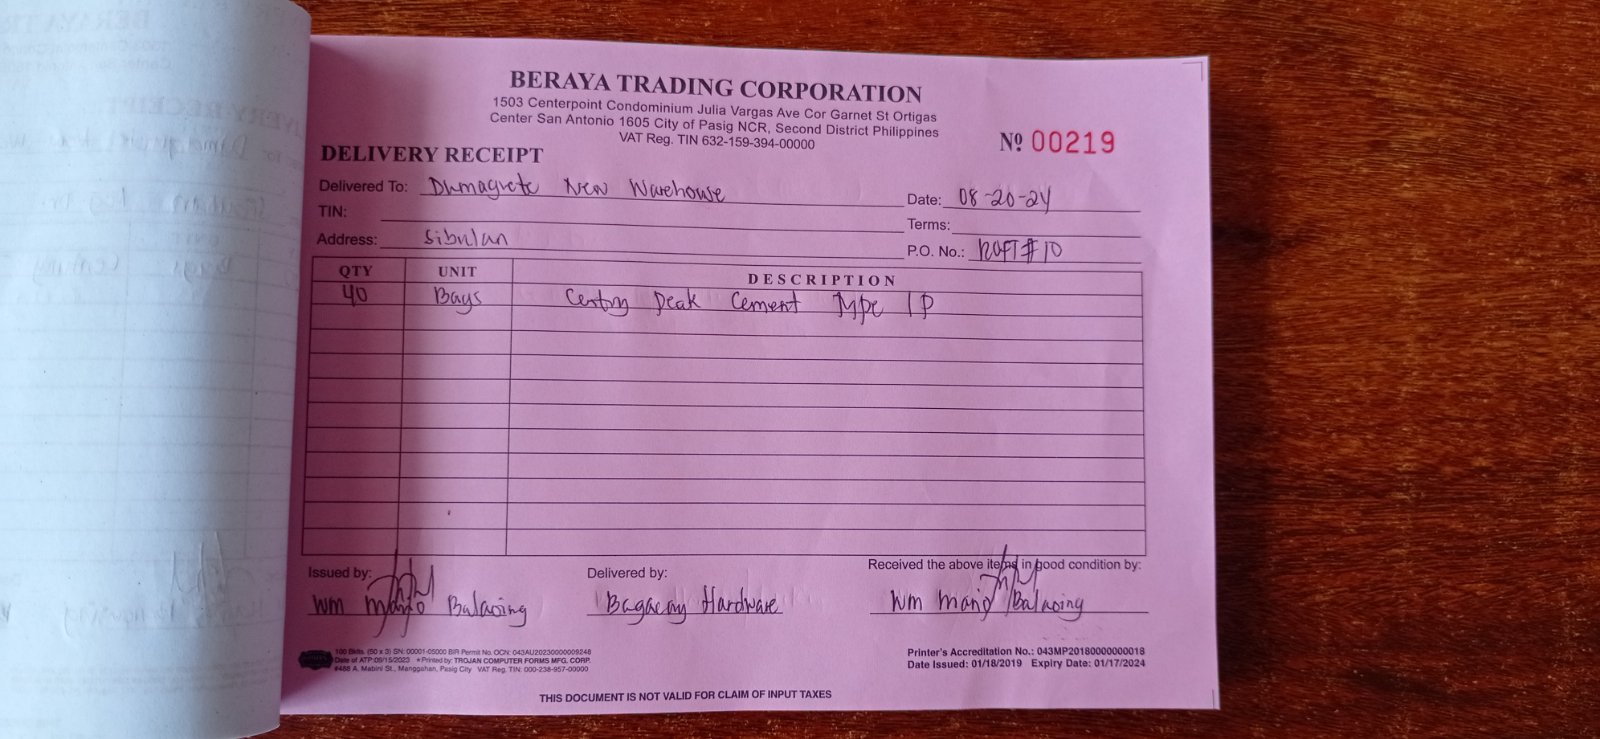 BERAYA TRADING CORPORATION
1503 Centerpoint Condominium Julia Vargas Ave Cor Garnet St Ortigas
Center San Antonio 1605 City of Pasig NCR, Second District Philippines
VAT Reg. TIN 632-159-394-00000
Nº 00219
DELIVERY RECEIPT
Delivered To: Dumaguete New Warehouse
Date: 08-20-24
TIN:
Terms:
Address: Sibulan
P.O. No.: #10
QTY UNIT DESCRIPTION
40 Bags Peak Cement Type 1P
Issued by:
Delivered by:
Received the above items in good condition by:
WM Mario
Bagacay Hardware
WM Mario
100 Bklts. (50 x 3) SN: 00001-05000 BIR Permit No. OCN: 043AU20230000009248
Date of ATP:09/15/2023 *Printed by: TROJAN COMPUTER FORMS MFG. CORP.
#488 A. Mabini St., Manggahan, Pasig City VAT Reg. TIN: 000-238-957-00000
Printer's Accreditation No.: 043MP20180000000018
Date Issued: 01/18/2019 Expiry Date: 01/17/2024
THIS DOCUMENT IS NOT VALID FOR CLAIM OF INPUT TAXES